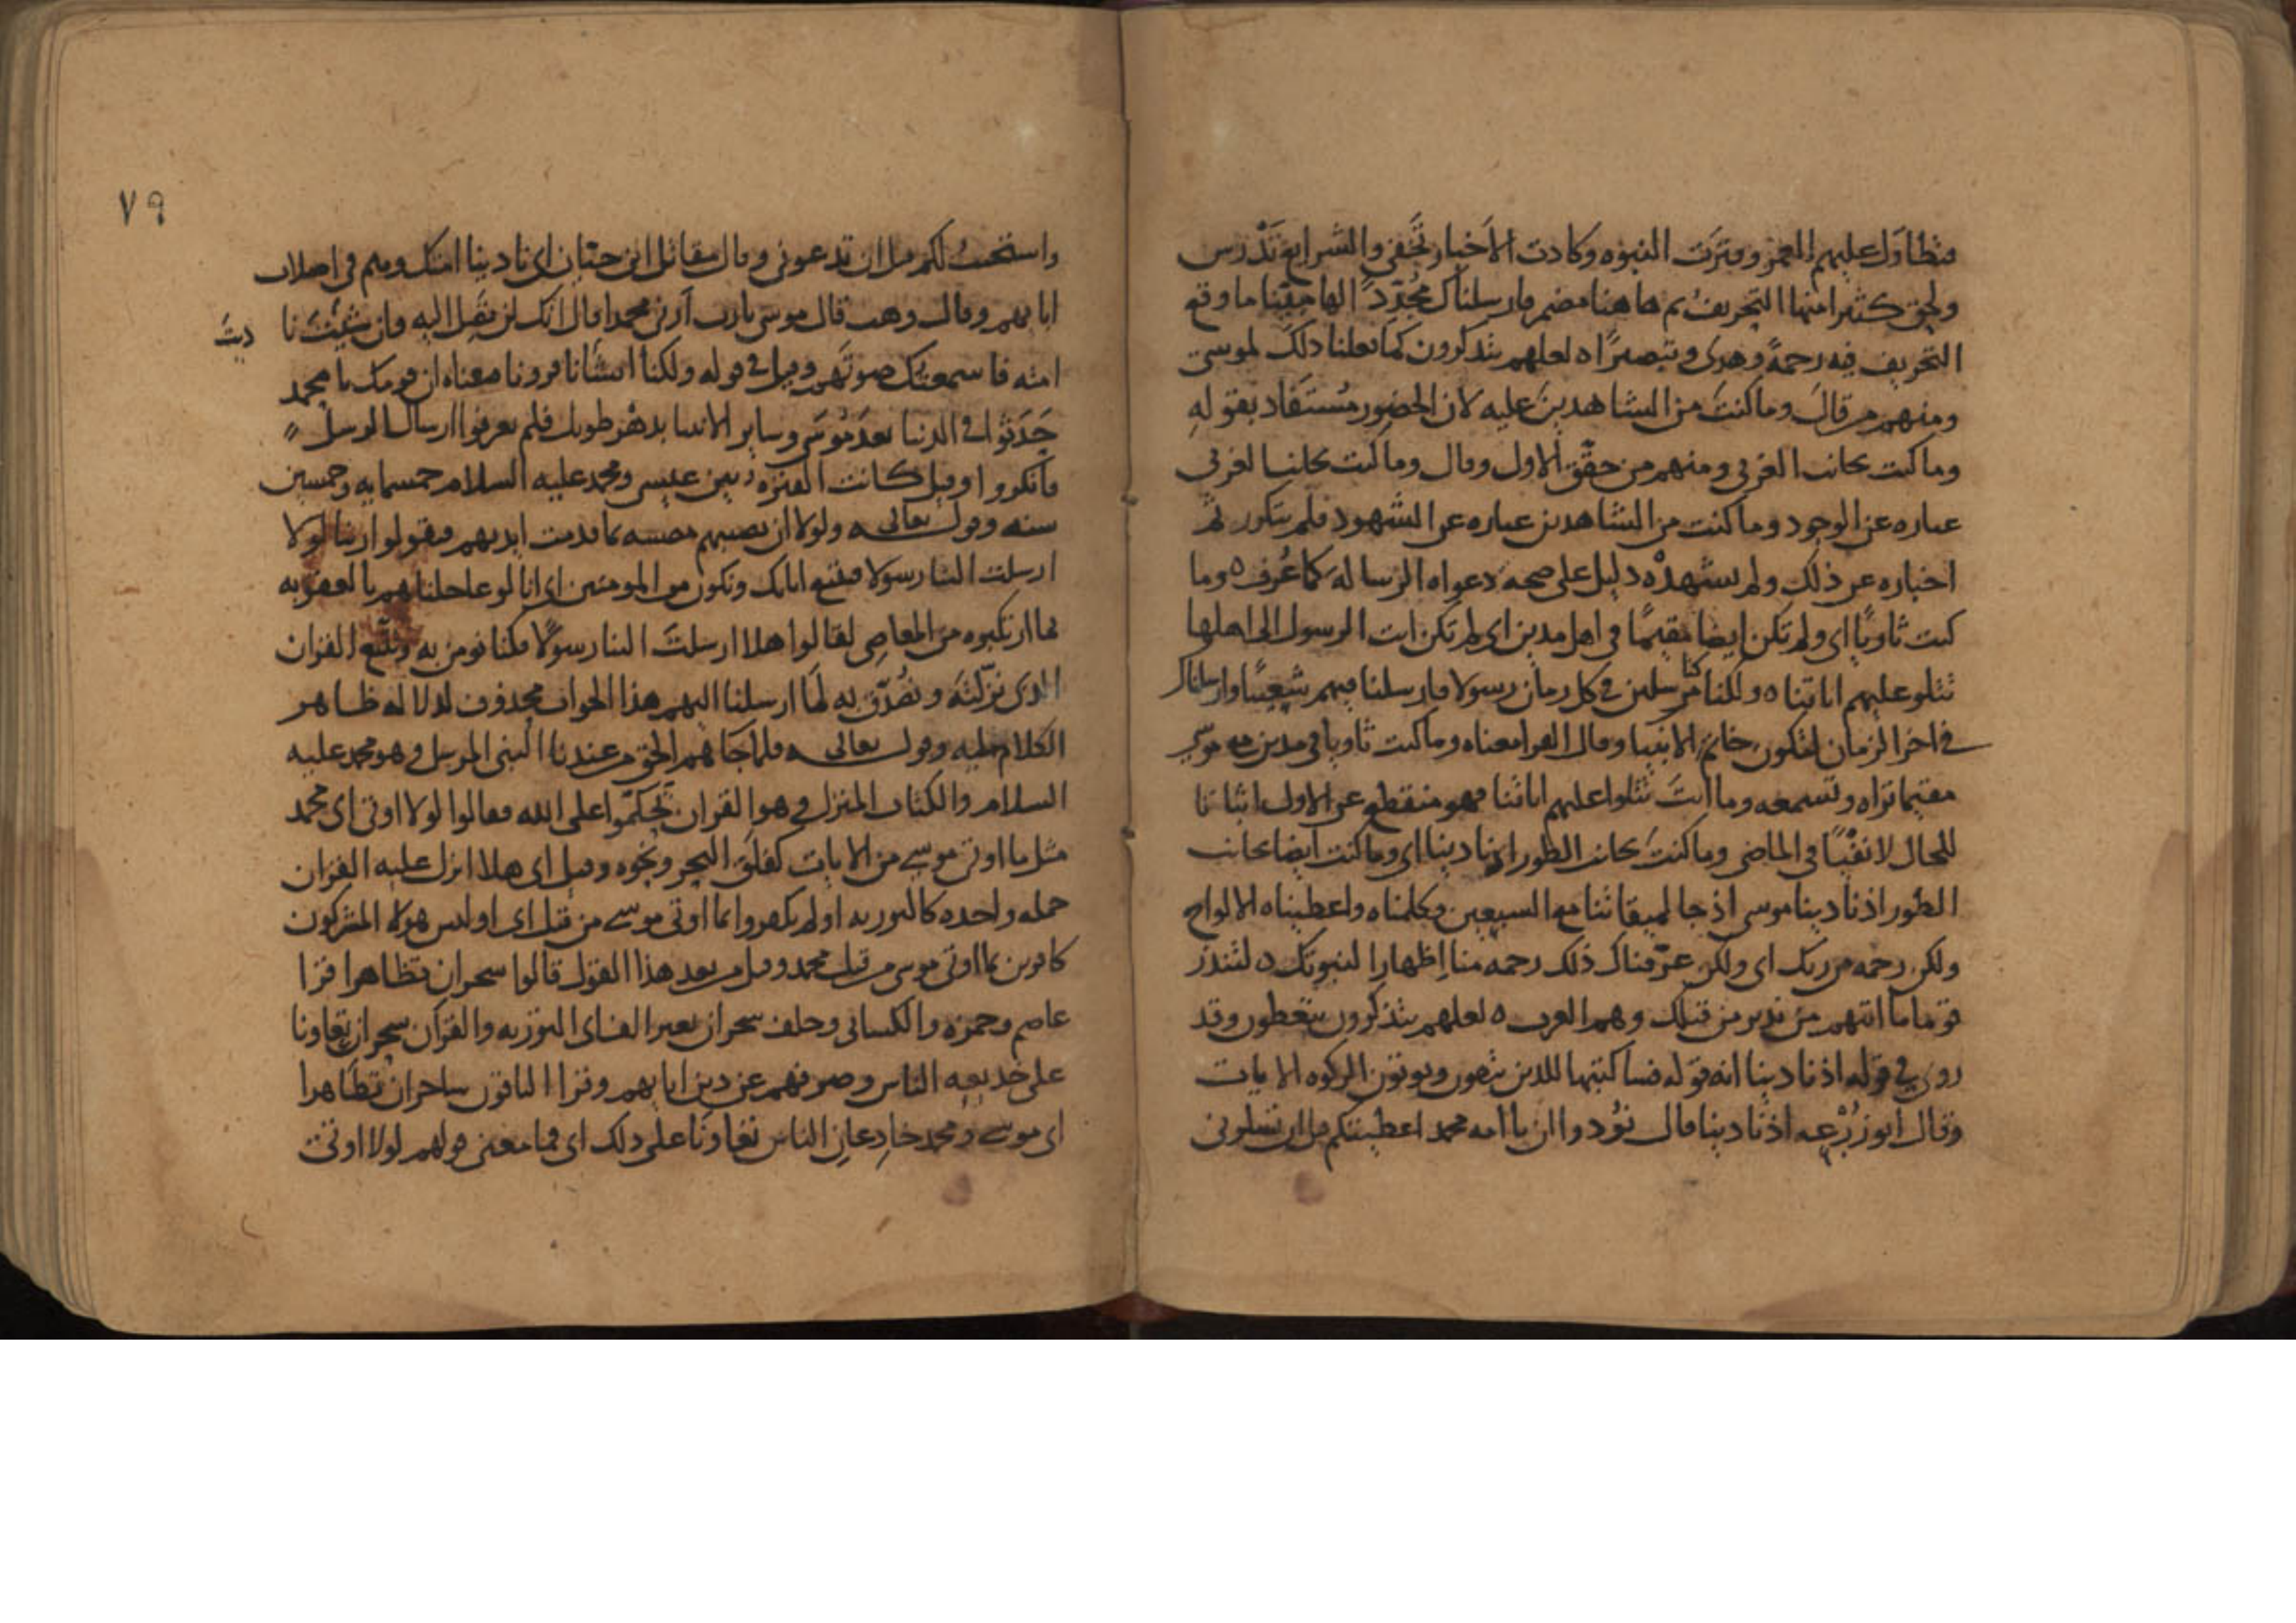 فتطاول عليهم العمر وفترت النبوه وكادت الاخبار تخفى والشرايع تندرس
ولحق كثيرا منها التحريف ثم هاهنا مضمر فارسلناك مجددا لها مبينا ما وقع
التحريف فيه رحمة وهدى وتبصيرا ه لعلهم يتذكرون كما فعلنا ذلك لموسى
ومنهم من قال وما كنت من الشاهدين عليه لان الحضور مستفاد بقوله
وما كنت بجانب الغربي ومنهم من حقق الاول وقال وما كنت بجانب الغربي
عباره عن الوجود وما كنت من الشاهدين عباره عن الشهود فلم يتكرر ثم
اخباره عن ذلك ولم يشهده دليل على صحه دعواه الرساله كما عرف ه وما
كنت ثاويا اى ولم تكن ايضا مقيما فى اهل مدين اى لم تكن انت الرسول الى اهلها
تتلو عليهم اياتنا ه ولكنا كنا مرسلين فى كل زمان رسولا فارسلنا فيهم شعيبا وارسلناك
فى اخر الزمان لتكون خاتم الانبيا وقال الفرا معناه وما كنت ثاويا فى مدين مع موسى
مقيما تراه وتسمعه وما انت تتلوا عليهم اياتنا فهو منقطع عن الاول اثباتا
للحال لا نفيا فى الماضى وما كنت بجانب الطور اذ نادينا اى وما كنت ايضا بجانب
الطور اذ نادينا موسى اذ جا لميقاتنا مع السبعين وكلمناه واعطيناه الالواح
ولكن رحمه من ربك اى ولكن عرفناك ذلك رحمه منا اظهارا لنبوتك ه لتنذر
قوما ما اتيهم من نذير من قبلك وهم العرب ه لعلهم يتذكرون يتعظون وقد
روى فى قوله اذ نادينا انه قوله فساكتبها للذين يتقون ويوتون الزكوه الايات
وقال ابو زرعه اذ نادينا قال نودوا ان يا امه محمد اعطيتكم قبل ان تسلونى
٧٩
واستجبت لكم قبل ان تدعونى وقال مقاتل ابن حيان اى نادينا امتك وهم فى اصلاب
ابايهم وقال وهب قال موسى يارب ارنى محمدا قال انك لن تصل اليه وان شيت نا
ديت
امته فاسمعتك صوتهم وقيل فى قوله ولكنا انشانا قرونا معناه ان قومك يا محمد
حدثوا فى الدنيا بعد موسى وساير الانبيا بدهر طويل فلم يعرفوا ارسال الرسل
فانكروا وقيل كانت الفتره بين عيسى ومحمد عليه السلام خمسمايه وخمسين
سنه وقوله تعالى ه ولولا ان تصيبهم مصيبه بما قدمت ايديهم فيقولوا ربنا لولا
ارسلت الينا رسولا فنتبع اياتك ونكون من المومنين اى انا لو عاجلناهم بالعقوبه
بما ارتكبوه من المعاصى لقالوا هلا ارسلت الينا رسولا فكنا نومن به ونتبع القران
الذى نزلته ونصدق به لما ارسلنا اليهم هذا الجواب محذوف لدلاله ظاهر
الكلام عليه وقوله تعالى ه فلما جاهم الحق من عندنا النبى المرسل وهو محمد عليه
السلام والكتاب المنزل وهو القران تحكموا على الله فقالوا لولا اوتى اى محمد
مثل ما اوتى موسى من الايات كفلق البحر ونحوه وقيل اى هلا انزل عليه القران
جمله واحده كالتوريه اولم يكفروا بما اوتى موسى من قبل اى اوليس هولاء المشركون
كافرين بما اوتى موسى من قبل محمد وقيل من بعد هذا القول قالوا سحران تظاهرا قرا
عاصم وحمزه والكسائى وخلف سحران بغير الف اى التوريه والقران سحران تعاونا
على خديعه الناس وصرفهم عن دين ابايهم وقرا الباقون ساحران تظاهرا
اى موسى ومحمد خادعان الناس تعاونا على ذلك اى فما معنى قولهم لولا اوتى